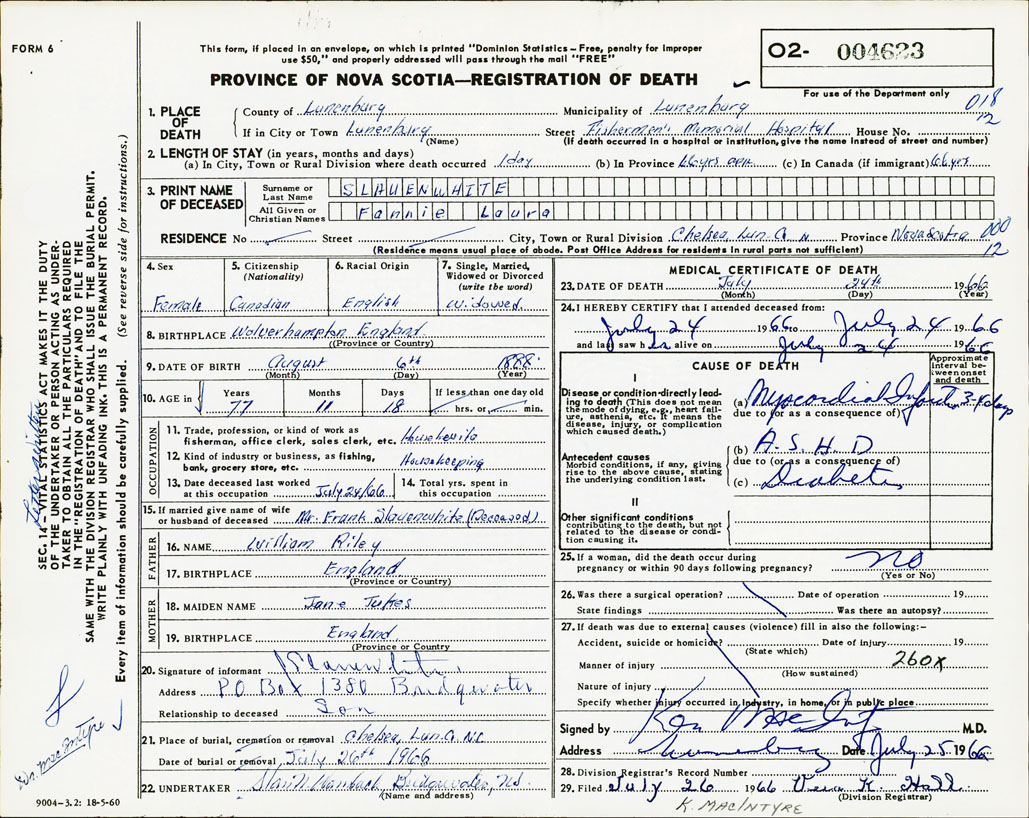 FORM 6
This form, if placed in an envelope, on which is printed "Dominion Statistics – Free, penalty for improper
use $50," and properly addressed will pass through the mail "FREE"
PROVINCE OF NOVA SCOTIA—REGISTRATION OF DEATH
O2- 004623
For use of the Department only
018
12
1. PLACE OF DEATH
County of Lunenburg Municipality of Lunenburg
If in City or Town Lunenburg Street Fishermen's Memorial Hospital House No.
(Name) (If death occurred in a hospital or institution, give the name instead of street and number)
2. LENGTH OF STAY (in years, months and days)
(a) In City, Town or Rural Division where death occurred 1 day (b) In Province 66 yrs apr. (c) In Canada (if immigrant) 66 yrs
3. PRINT NAME OF DECEASED
Surname or Last Name SLAUENWHITE
All Given or Christian Names Fannie Laura
RESIDENCE No Street City, Town or Rural Division Chelsea, Lun. Co. N Province Nova Scotia
000
12
(Residence means usual place of abode. Post Office Address for residents in rural parts not sufficient)
4. Sex Female
5. Citizenship (Nationality) Canadian
6. Racial Origin English
7. Single, Married, Widowed or Divorced (write the word) Widowed
8. BIRTHPLACE Wolverhampton, England
(Province or Country)
9. DATE OF BIRTH August 6th 1888
(Month) (Day) (Year)
10. AGE in Years Months Days If less than one day old
77 11 18 hrs. or min.
OCCUPATION
11. Trade, profession, or kind of work as
fisherman, office clerk, sales clerk, etc. Housewife
12. Kind of industry or business, as fishing,
bank, grocery store, etc. Housekeeping
13. Date deceased last worked
at this occupation July 24/66
14. Total yrs. spent in
this occupation
15. If married give name of wife
or husband of deceased Mr. Frank Slauenwhite (Deceased)
FATHER
16. NAME William Riley
17. BIRTHPLACE England
(Province or Country)
MOTHER
18. MAIDEN NAME Jane Jukes
19. BIRTHPLACE England
(Province or Country)
20. Signature of informant Slauenwhite
Address PO Box 1380 Bridgewater
Relationship to deceased Son
21. Place of burial, cremation or removal Chelsea, Lun. Co. N.S.
Date of burial or removal July 26th 1966
22. UNDERTAKER Bridgewater, N.S.
(Name and address)
MEDICAL CERTIFICATE OF DEATH
23. DATE OF DEATH July 24th 1966
(Month) (Day)
24. I HEREBY CERTIFY that I attended deceased from:
July 24 1966 to July 24 1966
and last saw her alive on July 24 1966
CAUSE OF DEATH
Approximate interval between onset and death
I
Disease or condition directly leading to death (This does not mean the mode of dying, e.g., heart failure, asthenia, etc. It means the disease, injury, or complication which caused death.)
(a) Myocardial Infarct 3-4 days
due to (or as a consequence of)
Antecedent causes
Morbid conditions, if any, giving rise to the above cause, stating the underlying condition last.
(b) A.S.H.D
due to (or as a consequence of)
(c) Diabetes
II
Other significant conditions
contributing to the death, but not related to the disease or condition causing it.
25. If a woman, did the death occur during
pregnancy or within 90 days following pregnancy? No
(Yes or No)
26. Was there a surgical operation? Date of operation 19
State findings Was there an autopsy?
27. If death was due to external causes (violence) fill in also the following:–
Accident, suicide or homicide? Date of injury 19
(State which)
Manner of injury 260X
(How sustained)
Nature of injury
Specify whether injury occurred in industry, in home, or in public place
Signed by Ken MacIntyre M.D.
Address Lunenburg Date July 25 1966
28. Division Registrar's Record Number
29. Filed July 26 1966 Vera K. Hall
(Division Registrar)
K. MACINTYRE
SEC. 14 – VITAL STATISTICS ACT MAKES IT THE DUTY
OF THE UNDERTAKER OR PERSON ACTING AS UNDER-
TAKER TO OBTAIN ALL THE PARTICULARS REQUIRED
IN THE "REGISTRATION OF DEATH" AND TO FILE THE
SAME WITH THE DIVISION REGISTRAR WHO SHALL ISSUE THE BURIAL PERMIT.
WRITE PLAINLY WITH UNFADING INK. THIS IS A PERMANENT RECORD.
Every item of information should be carefully supplied. (See reverse side for instructions.)
Dr. MacIntyre
9004-3.2: 18-5-60